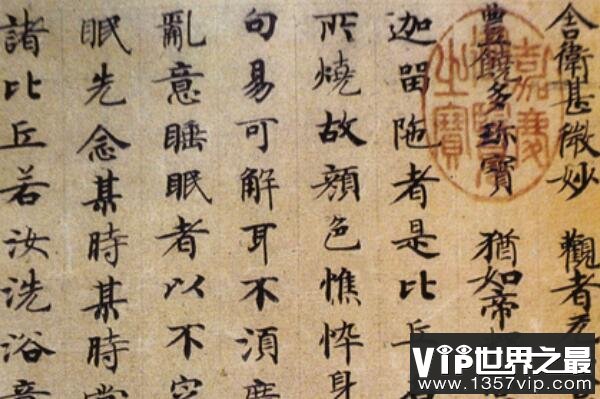 舍衛甚微妙 觀者
豐饒多珍寶 猶如帝
迦留陁者是比丘
所燒故顏色憔悴身
句易可解耳不湏
亂意睡眠者以不
眠先念某時某時
諸比丘若汝洗浴
嘉慶御覽之寶
VIP世界之最
www.1357vip.com